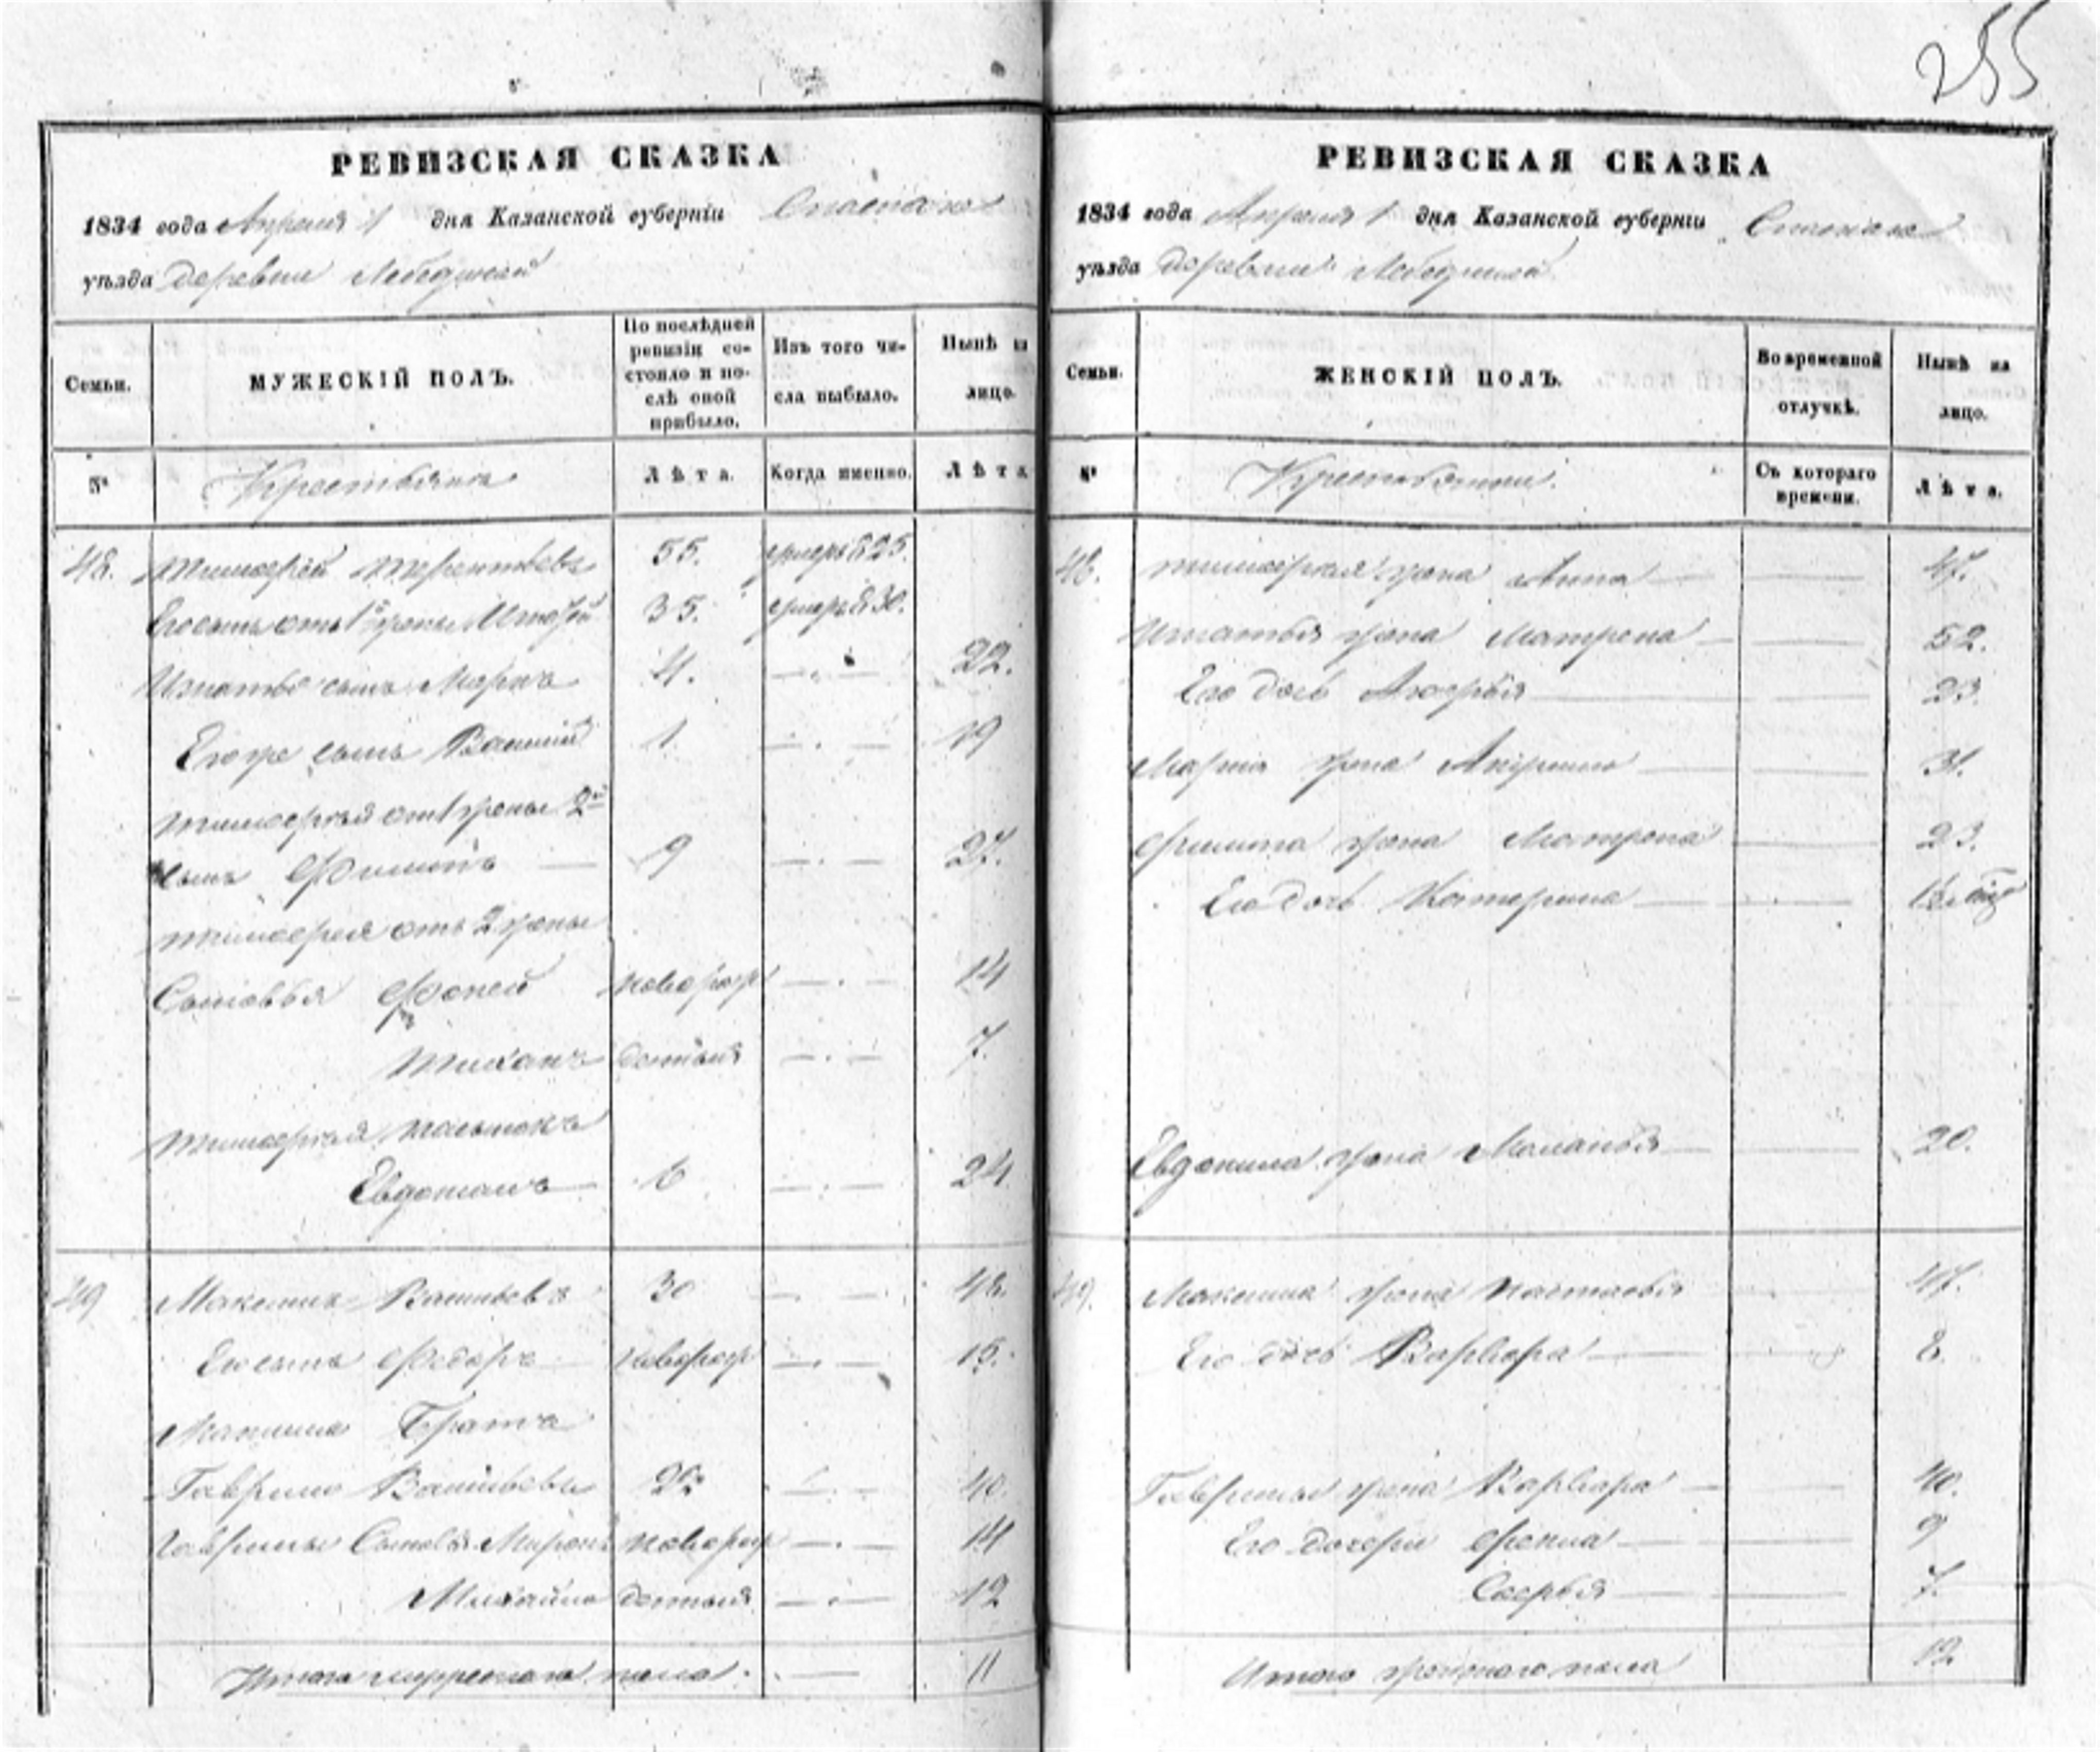 255
РЕВИЗСКАЯ СКАЗКА
1834 года Апреля 1 дня Казанской губерніи Спаскаго
уѣзда деревни Лебедіной
Семьи. МУЖЕСКІЙ ПОЛЪ. По послѣдней ревизіи состояло и послѣ оной прибыло. Изъ того числа выбыло. Нынѣ на лицо.
№ Крестьяна Лѣта. Когда именно. Лѣта
48. Тимофей Терентьевъ 55. умеръ 825.
Его сынъ отъ 1й жены Игнатей 35. умеръ 830.
Игнатья сынъ Маркъ 4. 22.
Его же сынъ Василий 1 19
Тимофея от 1 жены 2й
сынъ Филипъ 9 27.
Тимофея отъ 2 жены
Сыновья Фокей новорож 14
Тихонъ домъ 7.
Тимофея
Евдокимъ 6 24
49 Максимъ Васильевъ 30 48.
Его сынъ Федоръ новорож 15.
Максима Братъ
Гаврило Васильевъ 22 40.
Гаврилы Сыновья Миронъ новорож 14
Михайло 12
Итого мужескаго пола 11
РЕВИЗСКАЯ СКАЗКА
1834 года Апреля 1 дня Казанской губерніи Спаскаго
уѣзда деревни Лебедіной
Семьи. ЖЕНСКІЙ ПОЛЪ. Во временной отлучкѣ. Нынѣ на лицо.
№ Крестьянки Съ котораго времени. Лѣта.
48. Тимофея жена Анна 47.
Игнатья жена Матрена 52.
Его дочь 23.
Марка жена 31.
Филипа жена Матрена 23.
Его дочь Катерина
Евдокима жена Маланья 20.
49. Максима жена Настасья 47.
Его дочь Варвара 8.
Гаврилы жена Варвара 40.
Его дочери 9
Софья 7.
Итого женскаго пола 12